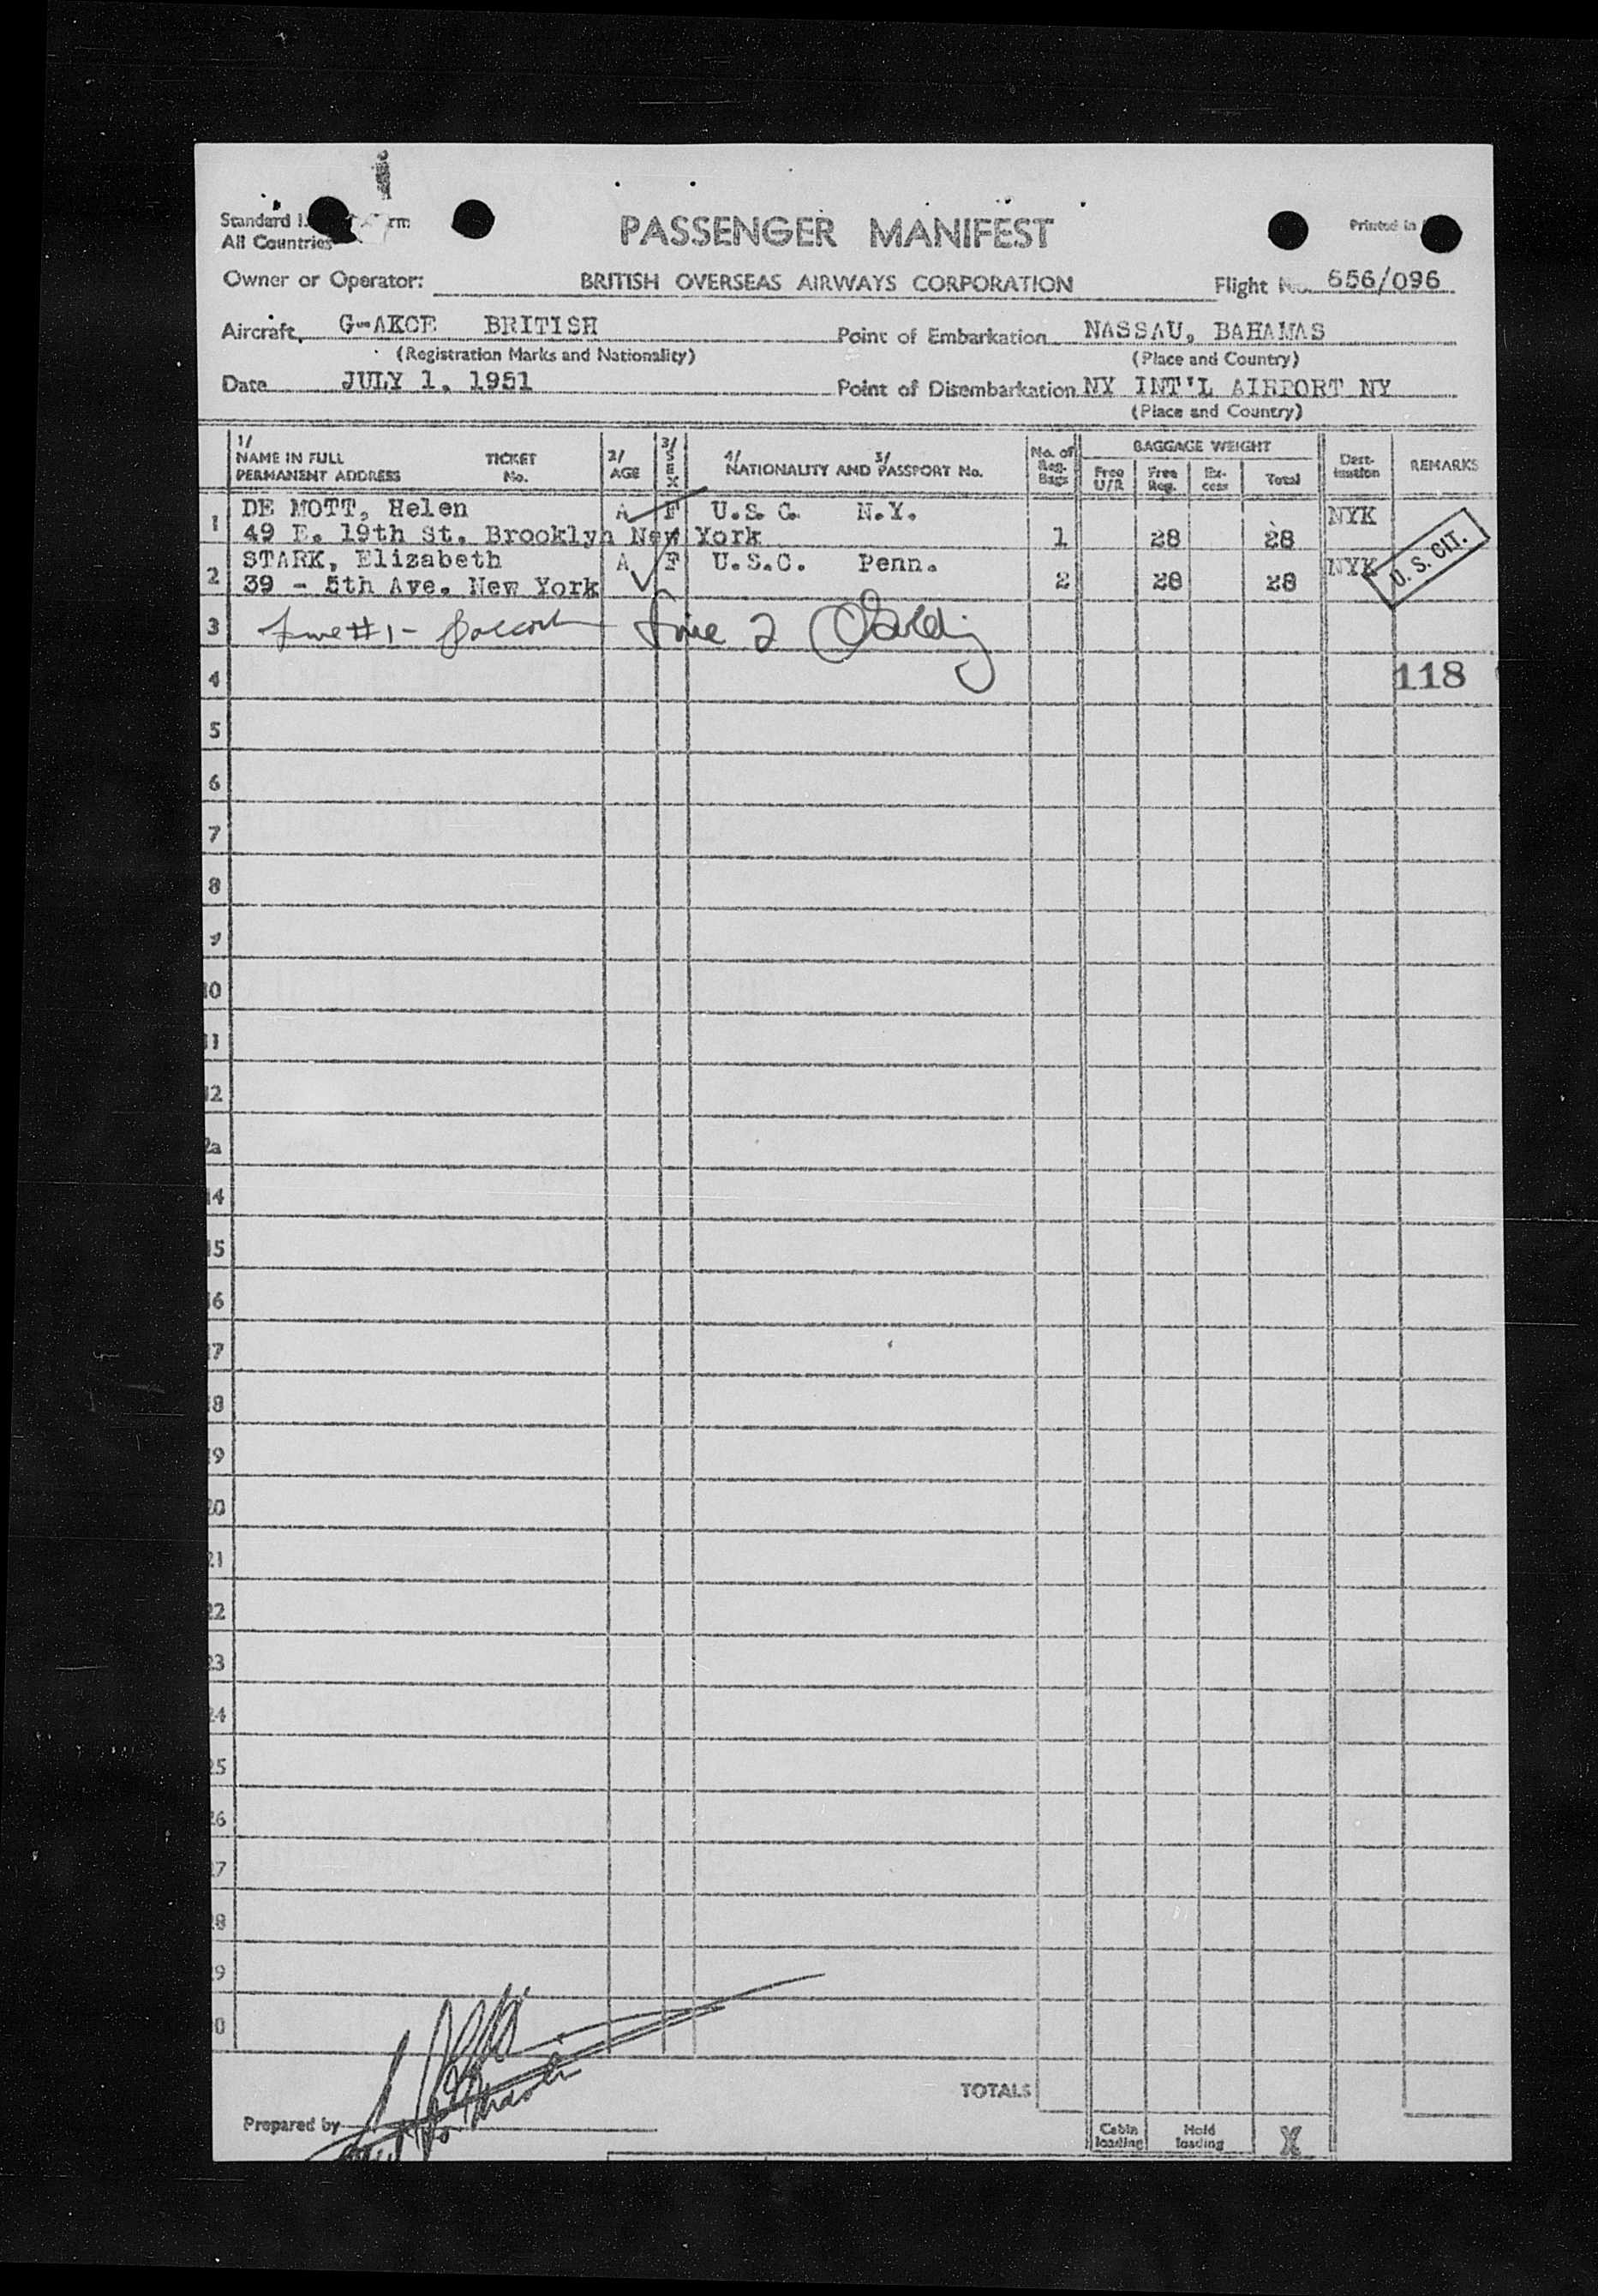 Standard
All Countries
PASSENGER MANIFEST
Printed in
Owner or Operator: BRITISH OVERSEAS AIRWAYS CORPORATION Flight No. 656/096
Aircraft, G-AKCE BRITISH Point of Embarkation NASSAU, BAHAMAS
(Registration Marks and Nationality) (Place and Country)
Date JULY 1, 1951 Point of Disembarkation NY INT'L AIRPORT NY
(Place and Country)
1/ NAME IN FULL PERMANENT ADDRESS TICKET No. 2/ AGE 3/ SEX 4/ NATIONALITY AND 5/ PASSPORT No. No. of Reg. Bags BAGGAGE WEIGHT Free U/R Free Reg. Ex-cess Total Dest-ination REMARKS
1 DE MOTT, Helen A F U.S.C. N.Y. NYK
49 E. 19th St. Brooklyn New York 1 28 28
2 STARK, Elizabeth A F U.S.C. Penn. NYK U. S. CIT.
39 - 5th Ave. New York 2 28 28
3 Line 2
4 118
5
6
7
8
9
10
11
12
2a
14
15
16
17
18
19
20
21
22
23
24
25
26
27
28
29
0
TOTALS
Prepared by
Cabin loading Hold loading X